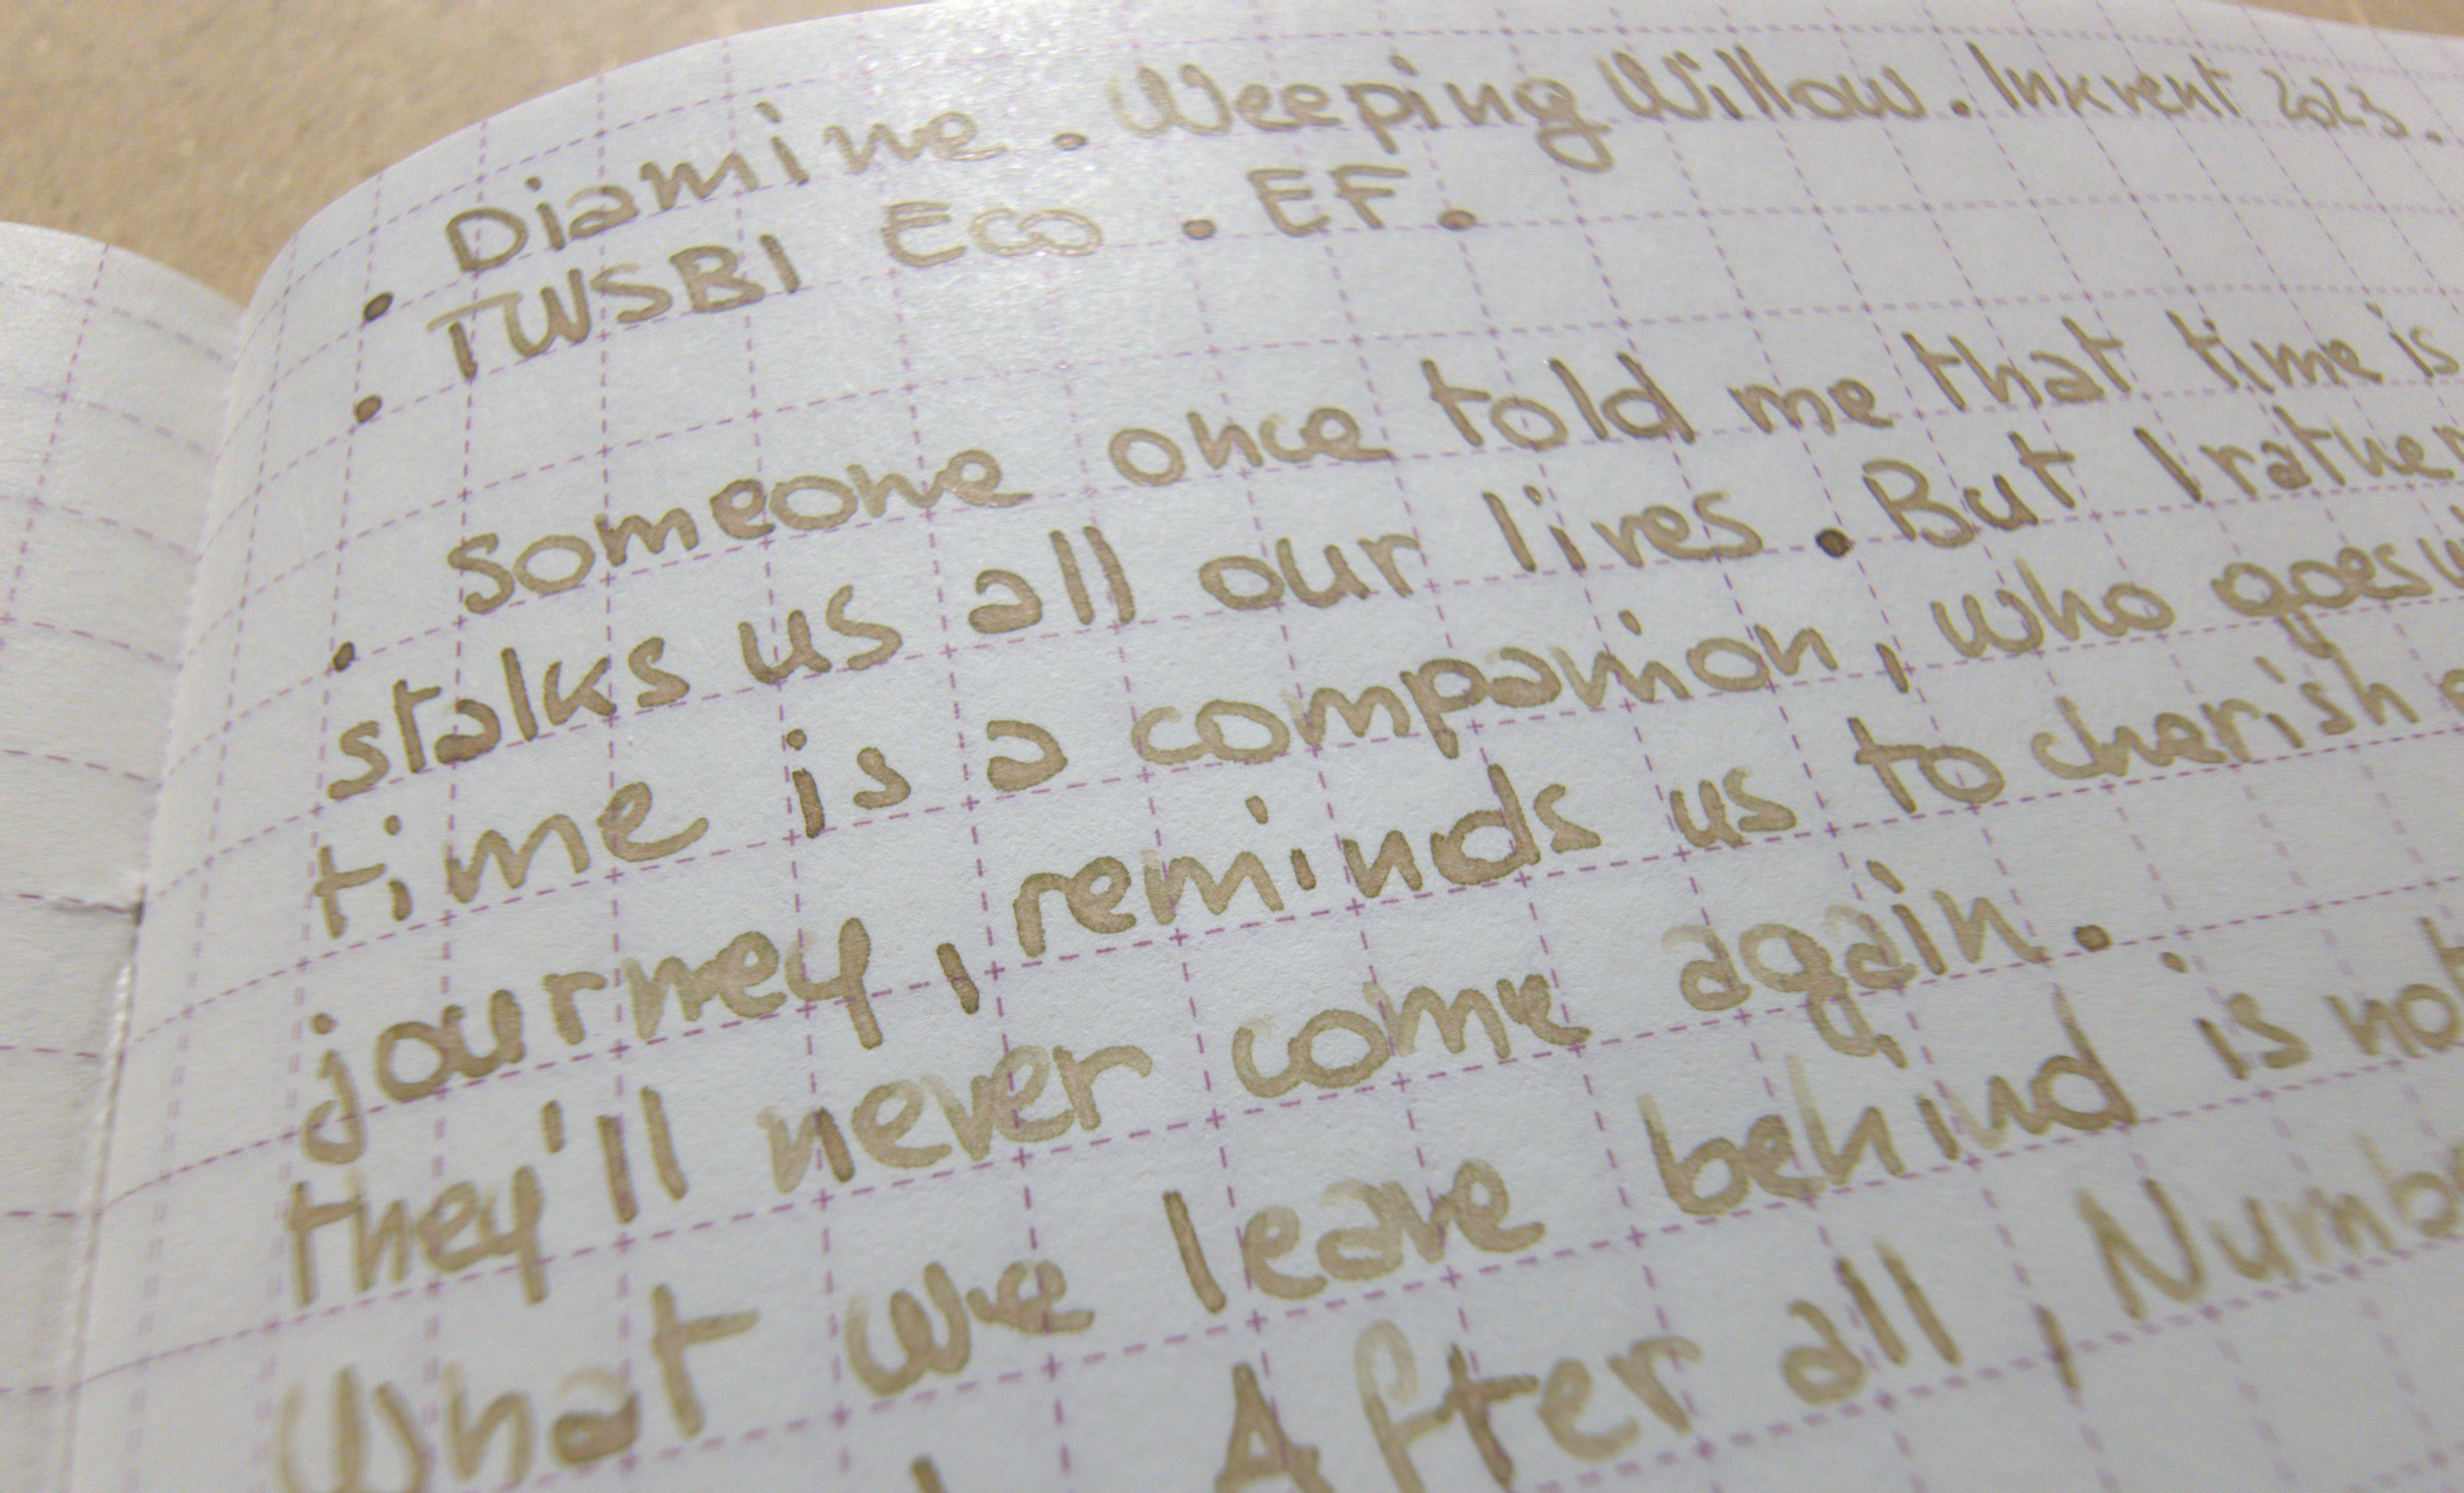 . Diamine . Weeping Willow . Inkvent 2023.
. TWSBI Eco . EF .
. Someone once told me that time is
stalks us all our lives . But I rather
time is a companion, who goes
journey, reminds us to cherish
they'll never come again.
What we leave behind is not
After all, Numb